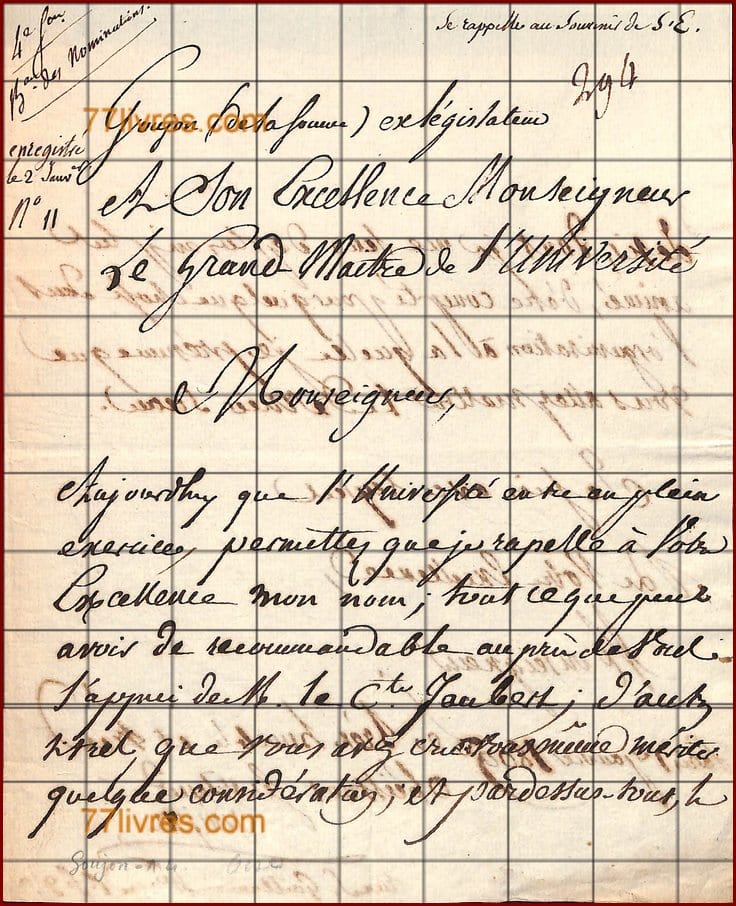 4e Son
Bau des Nominations.
Se rappelle au Souvenir de S. E.
294
77livres.com
enregistré
le 2 Janv.
N° 11
Goujon (de la Somme) exlégislateur
A Son Excellence Monseigneur
Le Grand Maitre de l'Université
Monseigneur,
Aujourdhuy que l'Université entre en plein
exercice, permettez que je rapelle à Votre
Excellence mon nom; tout ce que peut
avoir de recommandable auprès de vous
l'appui de M. le Cte Jaubert; d'autres
titres que vous avez cru vous même mériter
quelque considération, et pardessus-tout, le
77livres.com
Goujon